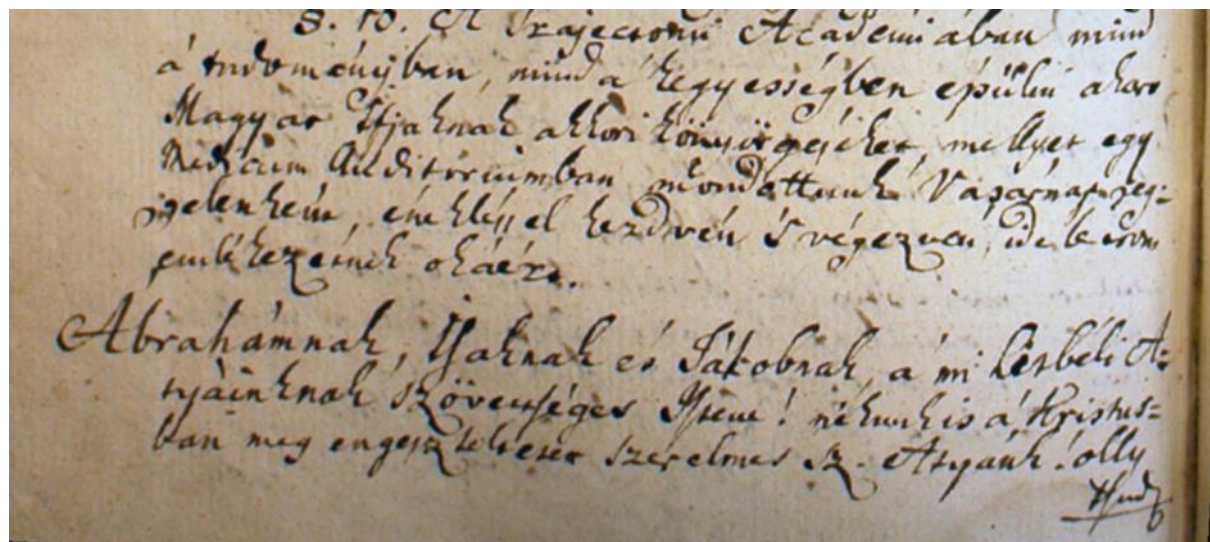 §. 10. A Trajectomi Academiában mind
á tudományban, mind a' kegyességben épülni akaro
Magyar Ifjaknak akkori könyörgéseket, mellyet egy
Medicum Auditoriumban mondottunk Vasárnap reg:
gelenként, énekléssel kezdvén s végezvén, ide le irom
emlékezetnek okáért.
Abrahámnak, Isaknak és Jákobnak, a' mi hitbéli A:
tyáinknak szövettséges Istene! nékünk is a' Kristus=
ban meg engeszteltetett szerelmes Sz. Atyánk! olly